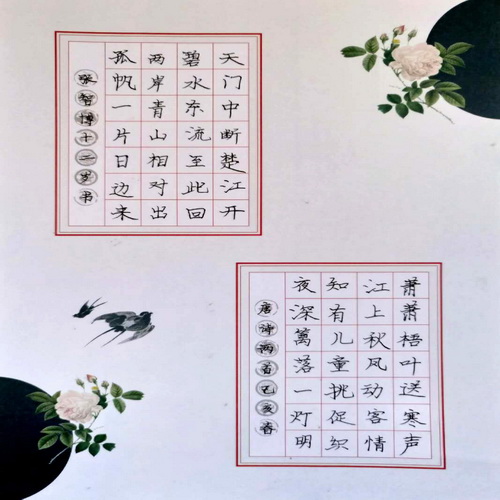 天门中断楚江开
碧水东流至此回
两岸青山相对出
孤帆一片日边来
张智博十二岁书
萧萧梧叶送寒声
江上秋风动客情
知有儿童挑促织
夜深篱落一灯明
唐诗两首己亥春